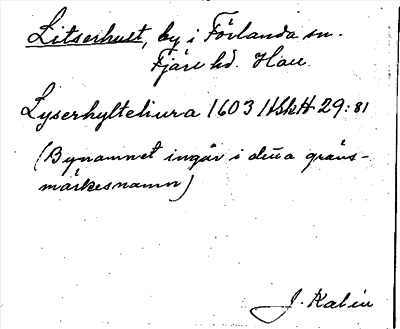 Litserhult, by i Förlanda sn.
Fjäre hd. Hall.
Lyserhylteliura 1603 HSkH 29:81
(Bynamnet ingår i detta gräns-
märkesnamn)
J. Kalén